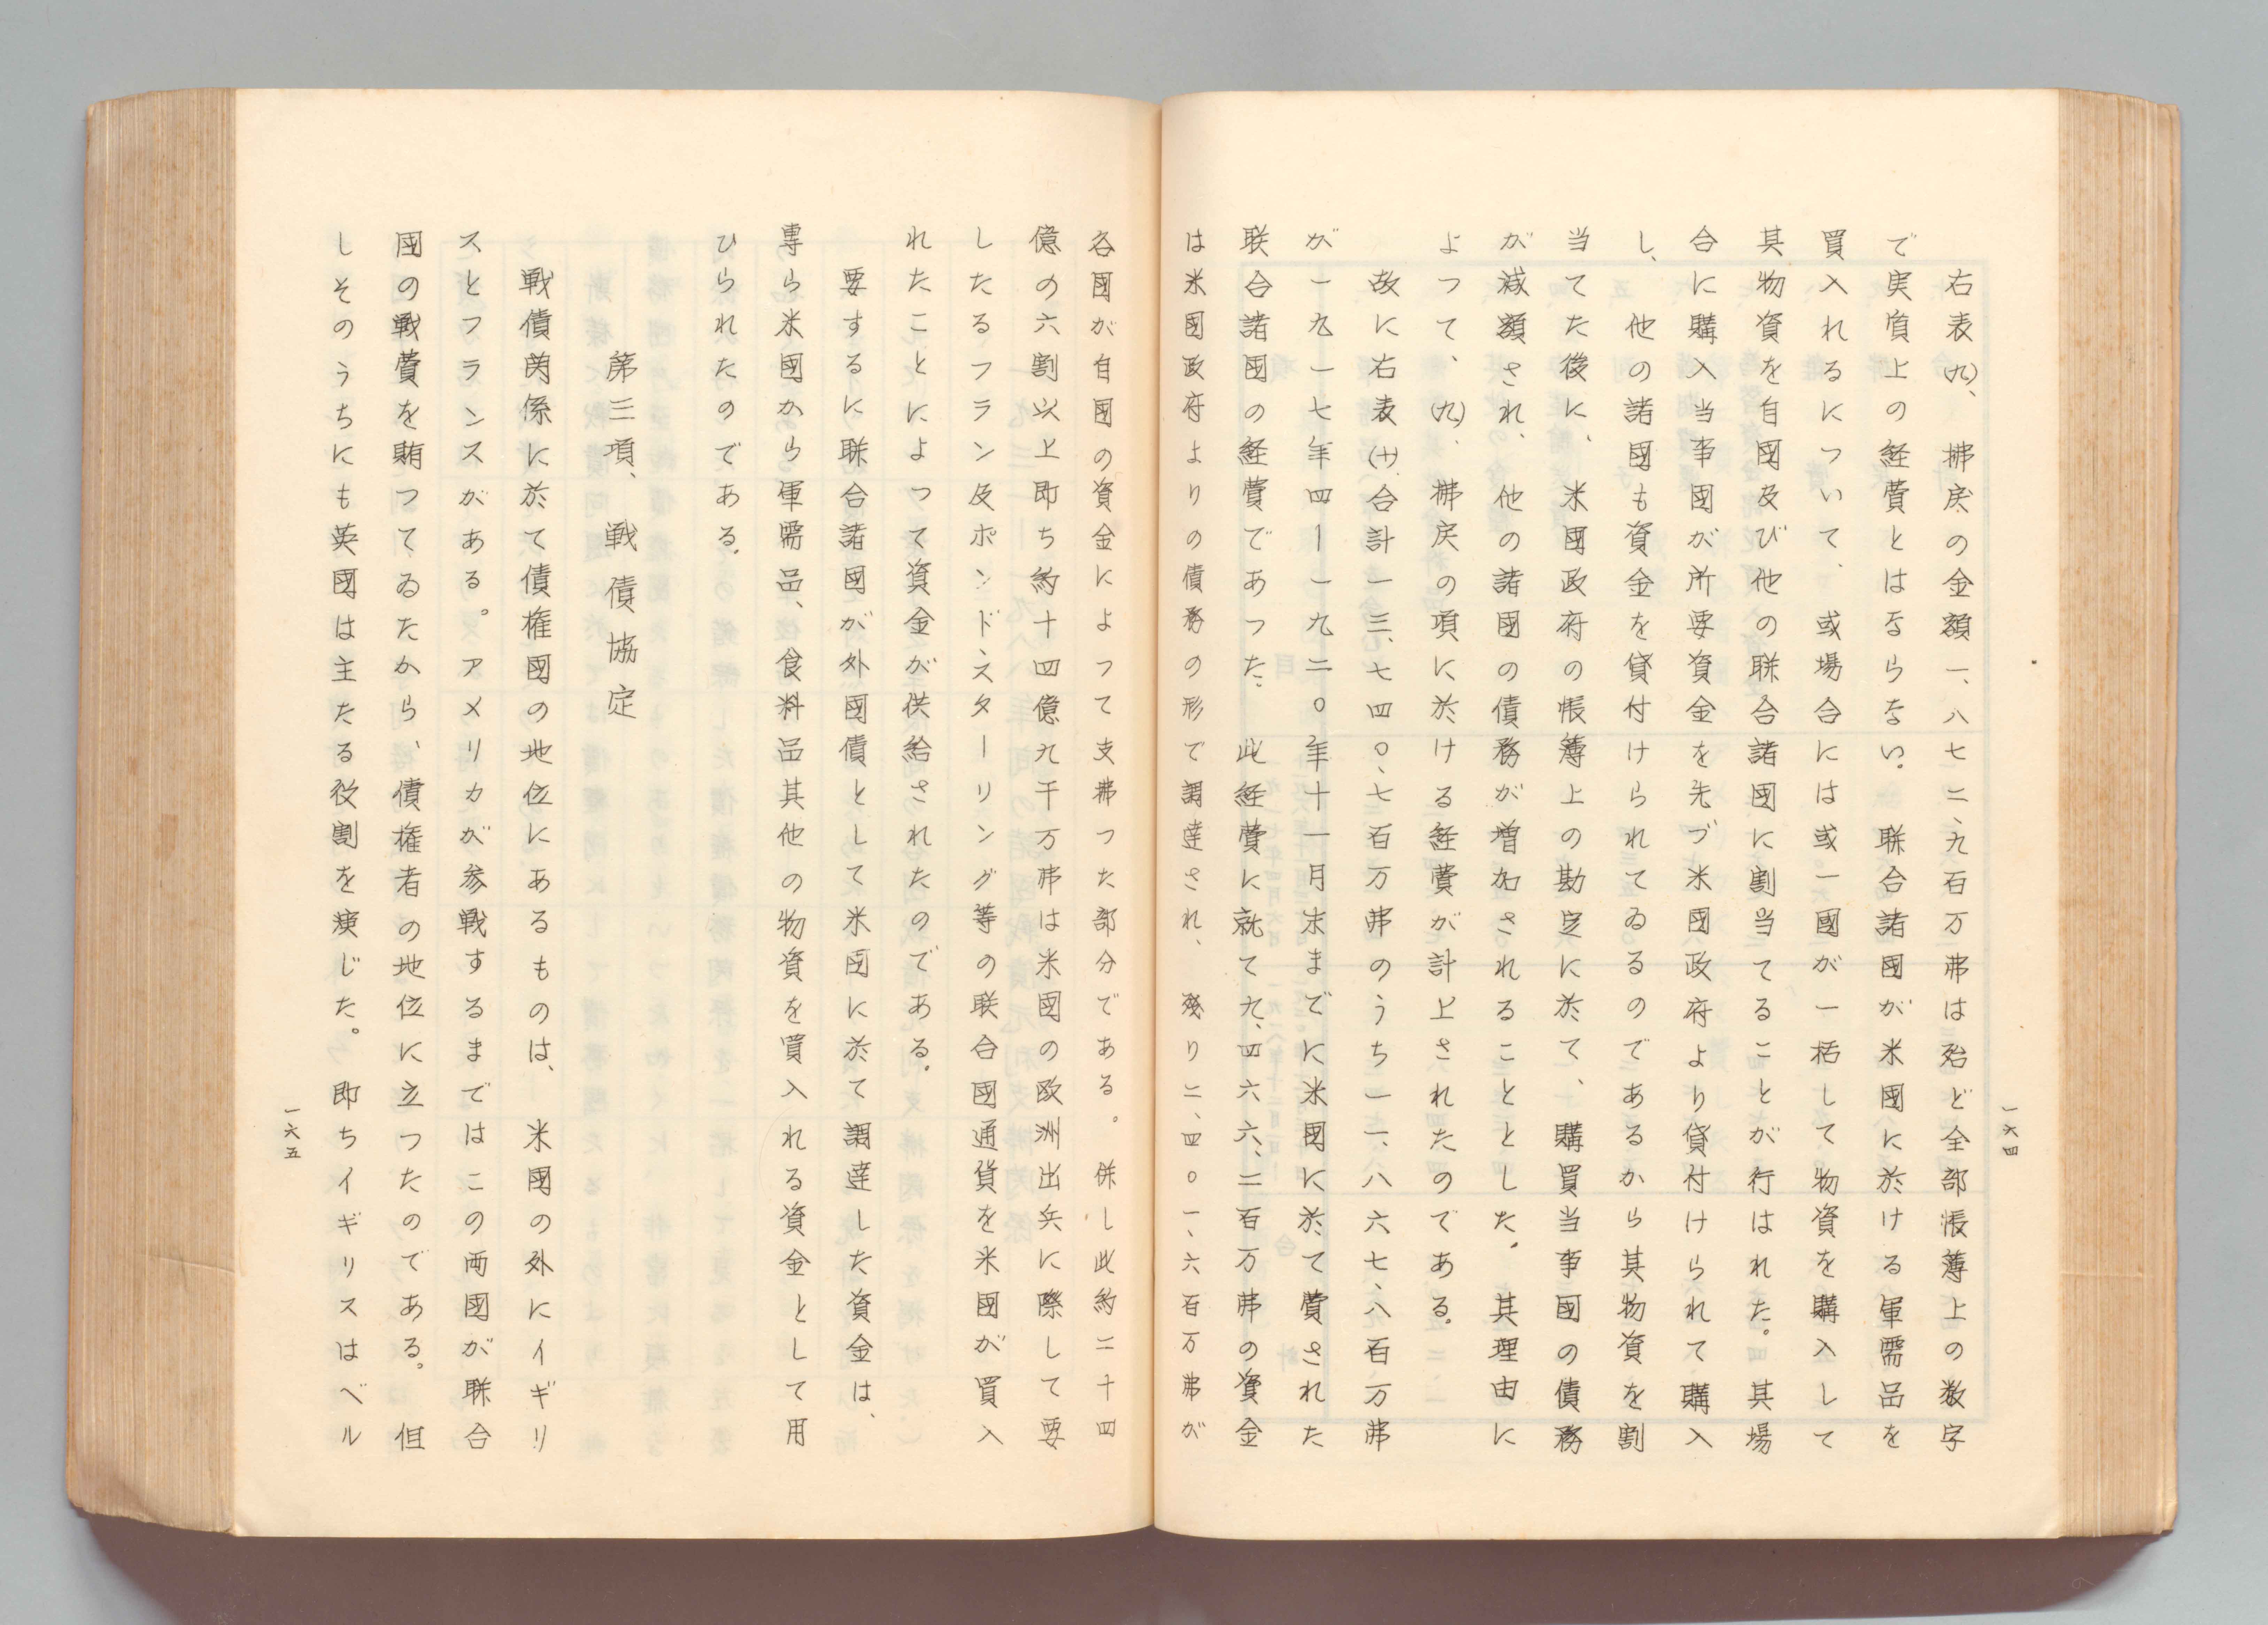 一六四
右表(九)、拂戻の金額一、八七二、九百万弗は殆ど全部帳簿上の数字
で実質上の経費とはならない。聯合諸國が米國に於ける軍需品を
買入れるについて、或場合には或一國が一括して物資を購入して
其物資を自國及び他の聯合諸國に割当てることが行はれた。其場
合に購入当事國が所要資金を先づ米國政府より貸付けられて購入
し、他の諸國も資金を貸付けられてゐるのであるから其物資を割
当てた後に、米國政府の帳簿上の勘定に於て、購買当事國の債務
が減額され、他の諸國の債務が増加されることとした。其理由に
よつて、(九)、拂戻の項に於ける経費が計上されたのである。
故に右表(十)、合計一三、七四〇、七百万弗のうち一一、八六七、八百万弗
が一九一七年四月—一九二〇年十一月末までに米國に於て費された
联合諸国の経費であつた。此経費に就て九、四六六、二百万弗の資金
は米國政府よりの債務の形で調達され、残り二、四〇一、六百万弗が
各國が自國の資金によつて支拂つた部分である。併し此約二十四
億の六割以上即ち約十四億九千万弗は米國の欧洲出兵に際して要
したる、フラン及ポンド、スターリング等の联合國通貨を米國が買入
れたことによつて資金が供給されたのである。
要するに、聯合諸國が外國債として米國に於て調達した資金は、
専ら米國から軍需品、食料品其他の物資を買入れる資金として用
ひられたのである。
第三項、戦債協定
戦債関係に於て債権國の地位にあるものは、米國の外にイギリ
スとフランスがある。アメリカが参戦するまではこの両國が聯合
國の戦費を賄つてゐたから、債権者の地位に立つたのである。但
しそのうちにも英國は主たる役割を演じた。即ちイギリスはベル
一六五